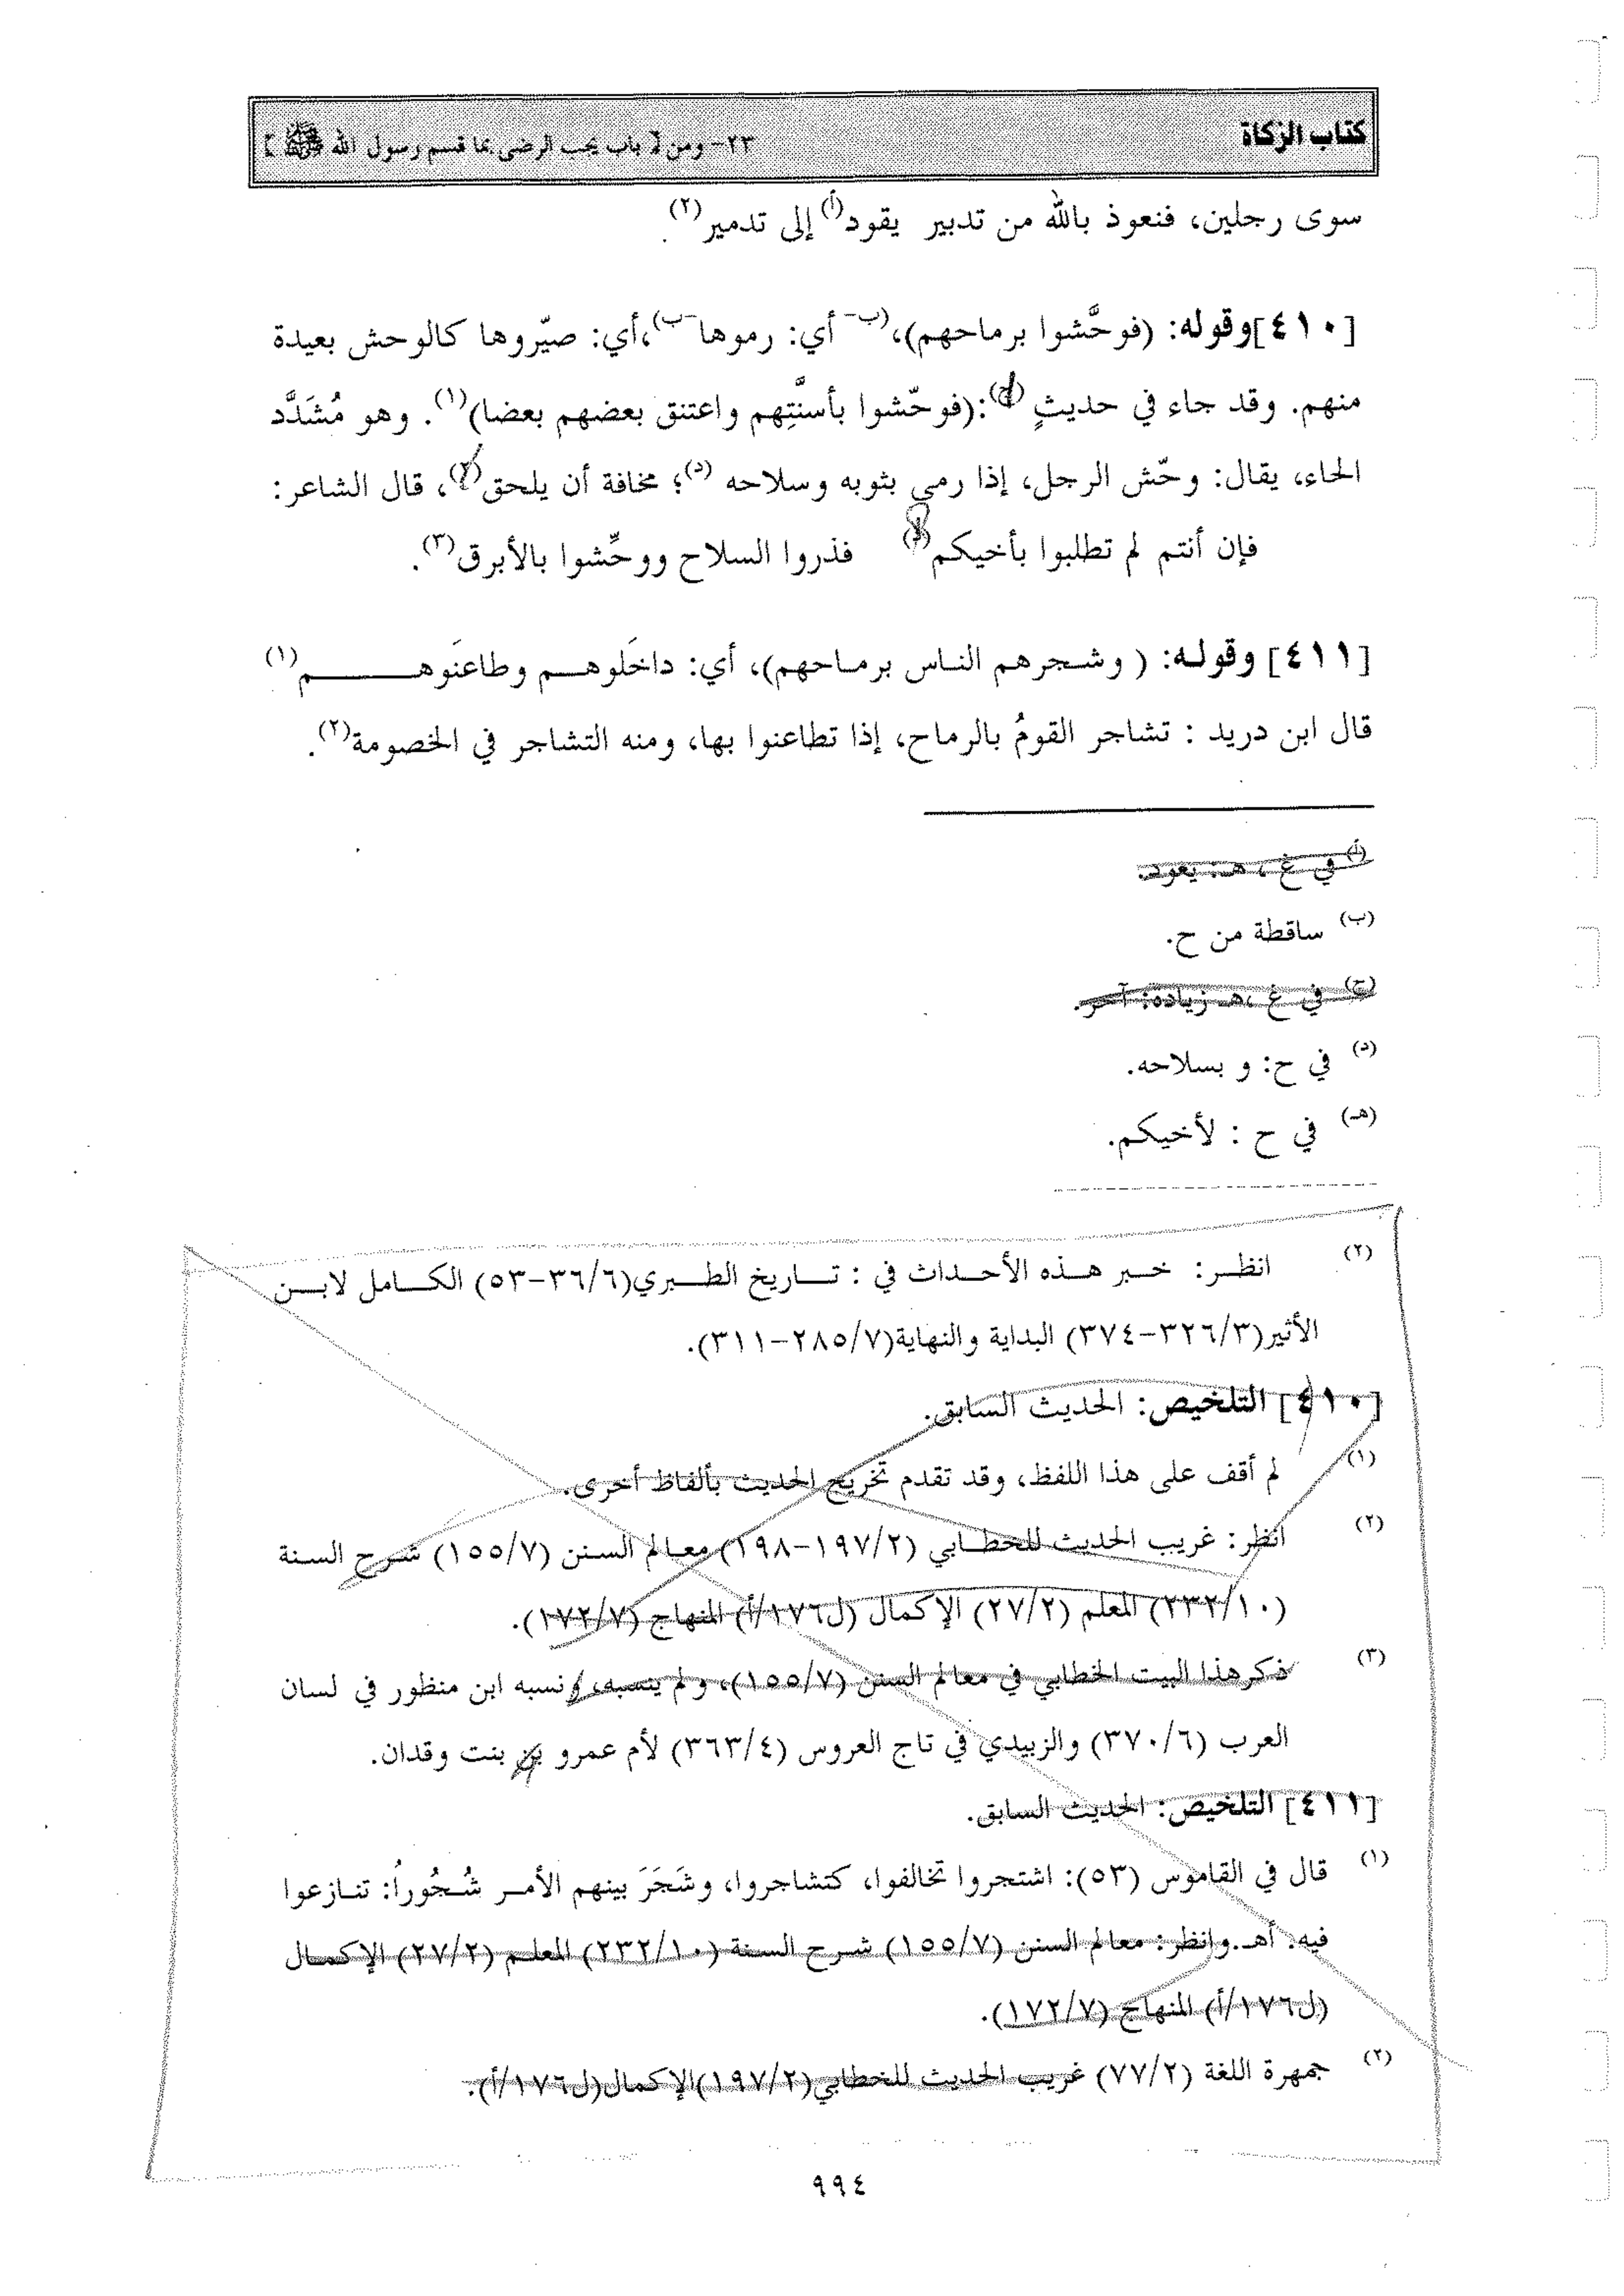 كتاب الزكاة
٢٣- ومن [ باب يجب الرضى بما قسم رسول الله ﷺ ]
سوى رجلين، فنعوذ بالله من تدبير يقود(أ) إلى تدمير(٢).
[٤١٠]وقوله: (فوحَّشوا برماحهم)،(ب- أي: رموها-ب)،أي: صيّروها كالوحش بعيدة
منهم. وقد جاء في حديثٍ(ج):(فوحّشوا بأسنَّتِهم واعتنق بعضهم بعضا)(١). وهو مُشَدَّد
الحاء، يقال: وحّش الرجل، إذا رمى بثوبه وسلاحه (د)؛ مخافة أن يلحق(٢)، قال الشاعر:
فإن أنتم لم تطلبوا بأخيكم(هـ) فذروا السلاح ووحِّشوا بالأبرق(٣).
[٤١١] وقوله: ( وشجرهم الناس برماحهم)، أي: داخَلوهم وطاعنَوهم(١)
قال ابن دريد : تشاجر القومُ بالرماح، إذا تطاعنوا بها، ومنه التشاجر في الخصومة(٢).
(أ) في غ ، هـ: يعود.
(ب) ساقطة من ح.
(ج) في غ ،هـ زيادة: آخر.
(د) في ح: و بسلاحه.
(هـ) في ح : لأخيكم.
(٢) انظر: خبر هذه الأحداث في : تاريخ الطبري(٣٦/٦-٥٣) الكامل لابن
الأثير(٣٢٦/٣-٣٧٤) البداية والنهاية(٢٨٥/٧-٣١١).
[٤١٠] التلخيص: الحديث السابق.
(١) لم أقف على هذا اللفظ، وقد تقدم تخريج الحديث بألفاظ أخرى.
(٢) انظر: غريب الحديث للخطابي (١٩٧/٢-١٩٨) معالم السنن (١٥٥/٧) شرح السنة
(٢٣٢/١٠) المعلم (٢٧/٢) الإكمال (ل١٧٦/أ) المنهاج (١٧٢/٧).
(٣) ذكر هذا البيت الخطابي في معالم السنن (١٥٥/٧)، ولم ينسبه، ونسبه ابن منظور في لسان
العرب (٣٧٠/٦) والزبيدي في تاج العروس (٣٦٣/٤) لأم عمرو بن بنت وقدان.
[٤١١] التلخيص: الحديث السابق.
(١) قال في القاموس (٥٣): اشتجروا تخالفوا، كتشاجروا، وشَجَرَ بينهم الأمر شُجُوراُ: تنازعوا
فيه. أهـ.وانظر: معالم السنن (١٥٥/٧) شرح السنة (٢٣٢/١٠) المعلم (٢٧/٢) الإكمال
(ل١٧٦/أ) المنهاج (١٧٢/٧).
(٢) جمهرة اللغة (٧٧/٢) غريب الحديث للخطابي(١٩٧/٢)الإكمال(ل١٧٦/أ).
٩٩٤